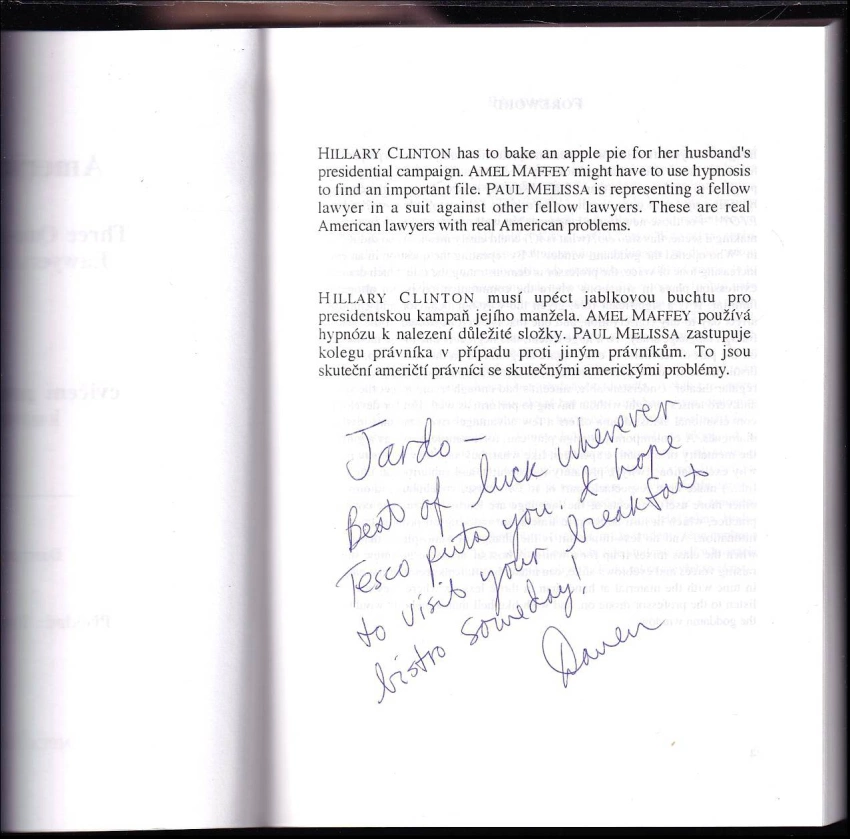 HILLARY CLINTON has to bake an apple pie for her husband's
presidential campaign. AMEL MAFFEY might have to use hypnosis
to find an important file. PAUL MELISSA is representing a fellow
lawyer in a suit against other fellow lawyers. These are real
American lawyers with real American problems.
HILLARY CLINTON musí upéct jablkovou buchtu pro
presidentskou kampaň jejího manžela. AMEL MAFFEY používá
hypnózu k nalezení důležité složky. PAUL MELISSA zastupuje
kolegu právníka v případu proti jiným právníkům. To jsou
skuteční američtí právníci se skutečnými americkými problémy.
Jardo –
Best of luck wherever
Tesco puts you & hope
to visit your breakfast
bistro someday!